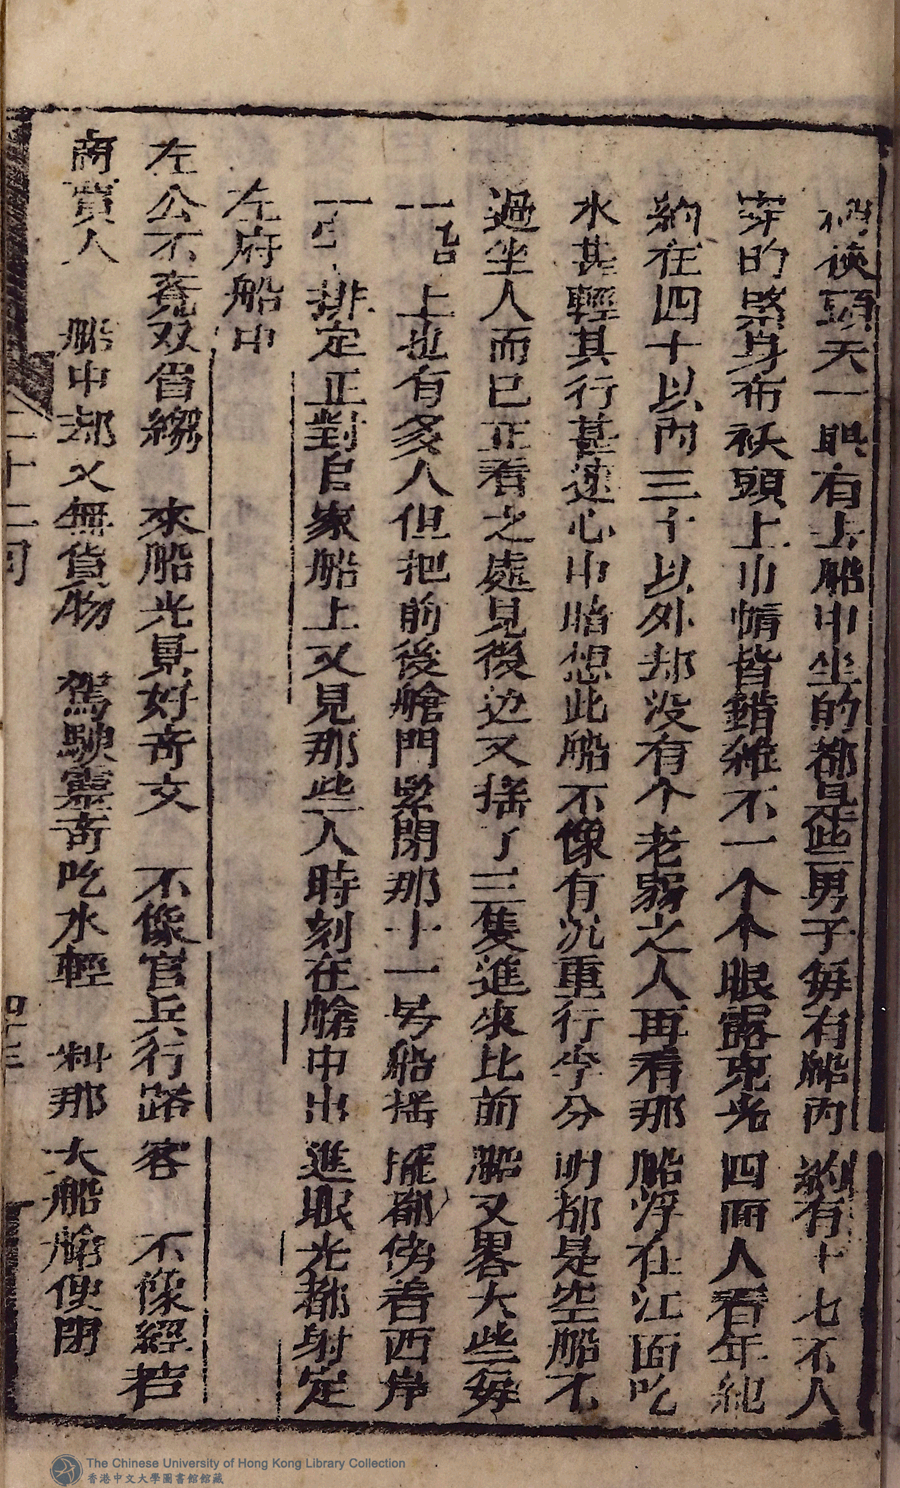 頭天一眼有去船中坐的都是些男子每有船內約有十七不人
穿的緊身布袄頭上巾幘皆錯雜不一个个眼露兇光四面人看年紀
約在四十以內三十以外却没有个老弱之人再看那船浮在江面吃
水甚輕其行甚速心中暗想此船不像有沉重行李分明都是空船不
過坐人而已正看之處見後边又搖了三隻進來比前船又畧大些每
上也有多人但把前後艙門緊閉那十一号船搖擺都傍着西岸
一字排定正對自家船上又見那些人時刻在艙中出進眼光都射定
左府船中
左公不覔双眉縐 來船光景好奇文 不像官兵行路客 不像經
商賈人 船中却又無貨物 駕駛靈奇吃水輕 料那大船艙便閉
二十二回
四十三
The Chinese University of Hong Kong Library Collection
香港中文大學圖書館館藏